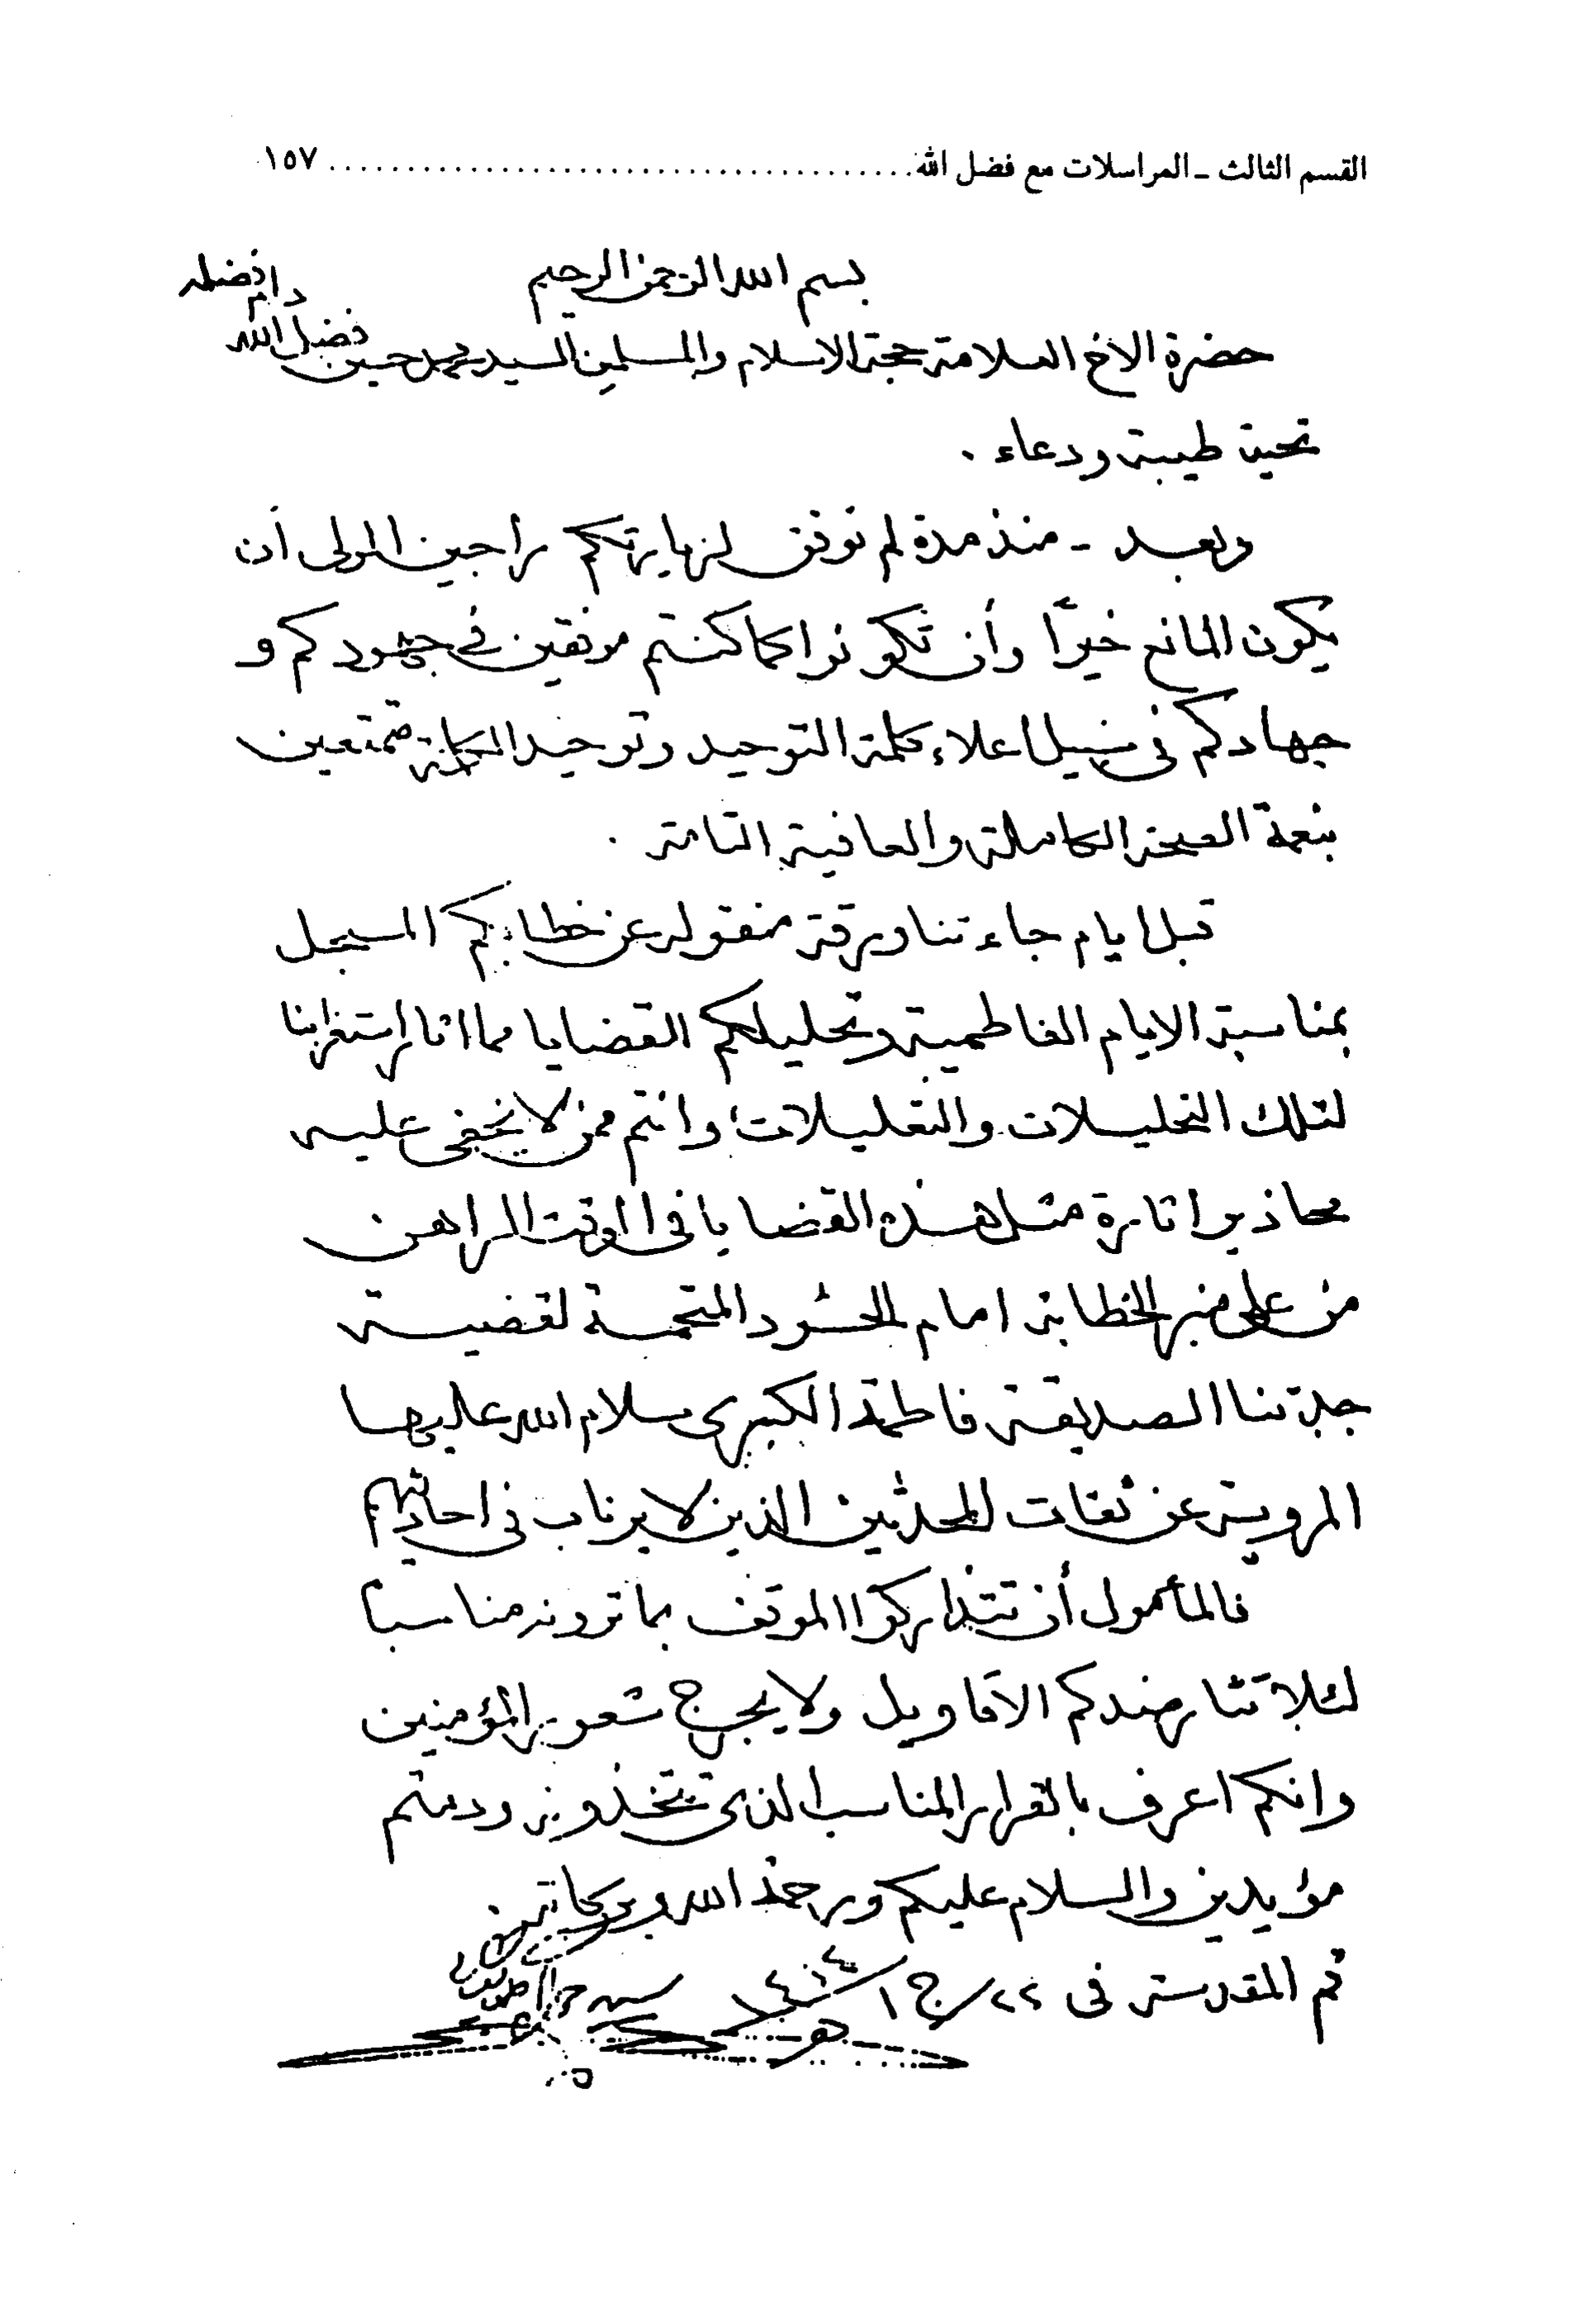 القسم الثالث ـ المراسلات مع فضل الله ........................................ ١٥٧
بسم الله الرحمن الرحيم
دام فضله
حضرة الأخ العلامة حجة الاسلام والمسلمين السيد محمد حسين فضل الله
تحية طيبة ودعاء .
وبعد - منذ مدة لم نوفق لزيارتكم راجين المولى أن
يكون المانع خيراً وأن تكونوا كما كنتم موفقين في جهودكم و
جهادكم في سبيل اعلاء كلمة التوحيد وتوحيد الكلمة متمتعين
بنعمة الصحة الكاملة والعافية التامة .
قبل ايام جاءتنا ورقة منقولة عن خطابكم المسجل
بمناسبة الايام الفاطمية وتحليلكم القضايا مما اثار استغرابنا
لتلك التحليلات والتعليلات، وانتم ممن لا يخفى عليه
محاذير اثارة مثل هذه القضايا في الوقت الراهن
من على منبر الخطابة امام الحشود المتحمسة لقضية
جدتنا الصديقة فاطمة الكبرى سلام الله عليها
المروية عن ثقات المحدثين الذين لا يرتاب في احاديثهم
فالمأمول أن تتداركوا الموقف بما ترونه مناسباً
لئلا تثار ضدكم الاقاويل ولا يجرح شعور المؤمنين
وانكم اعرف بالقرار المناسب الذي تتخذونه ودمتم
مؤيدين والسلام عليكم ورحمة الله وبركاته
قم المقدسة في ٢٢/ج ١/١٤١٤ هـ